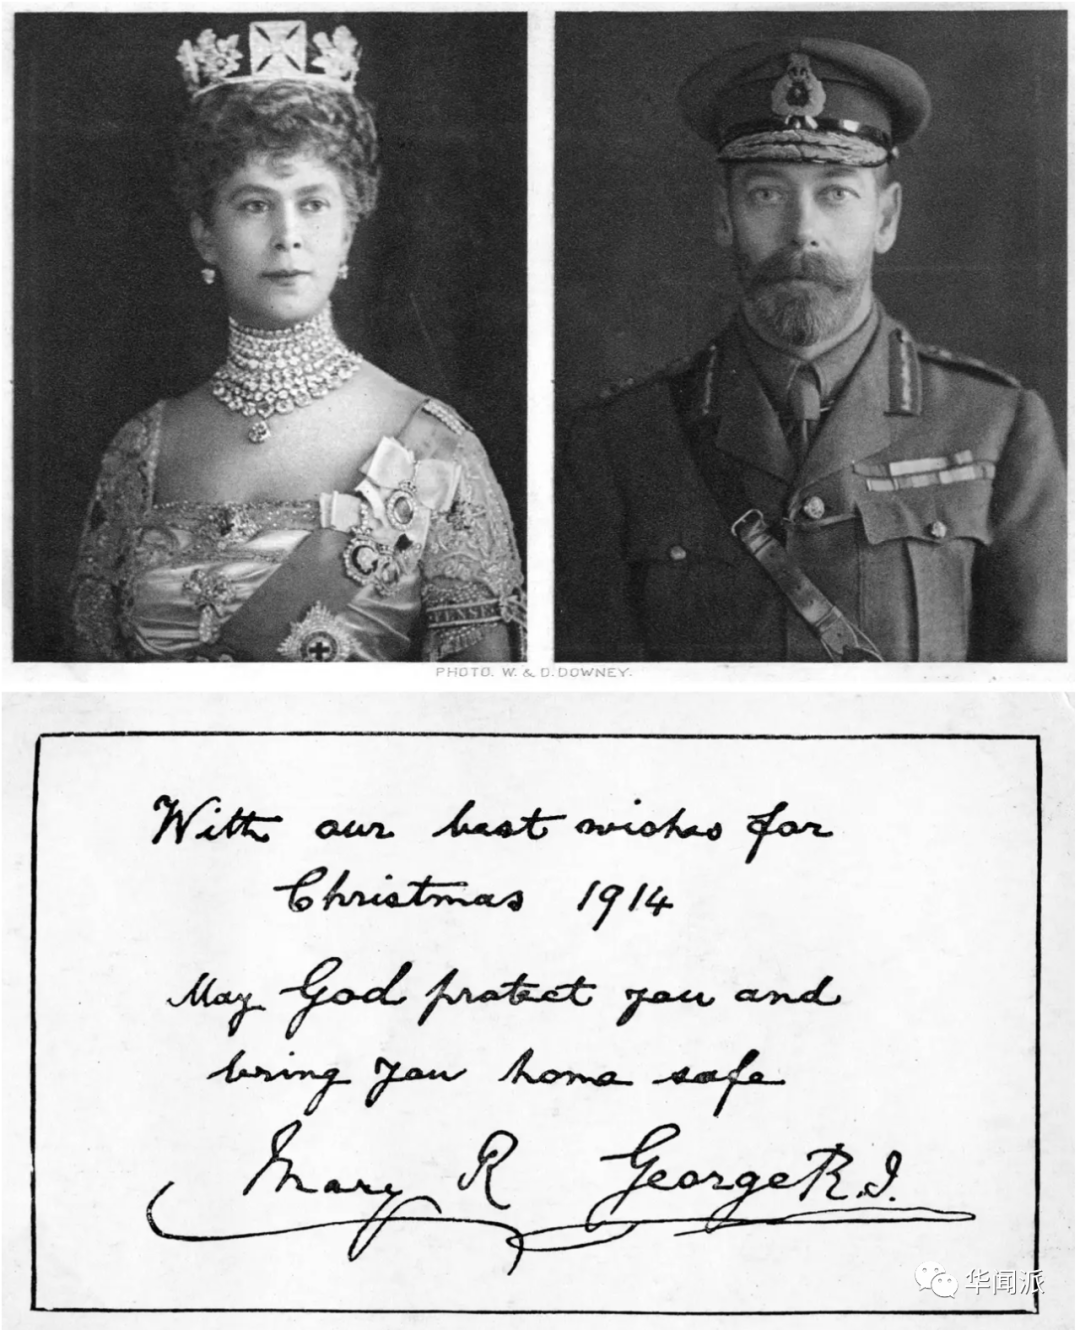 PHOTO. W. & D. DOWNEY.
With our best wishes for
Christmas 1914
May God protect you and
bring you home safe
Mary R George R.I.
华闻派